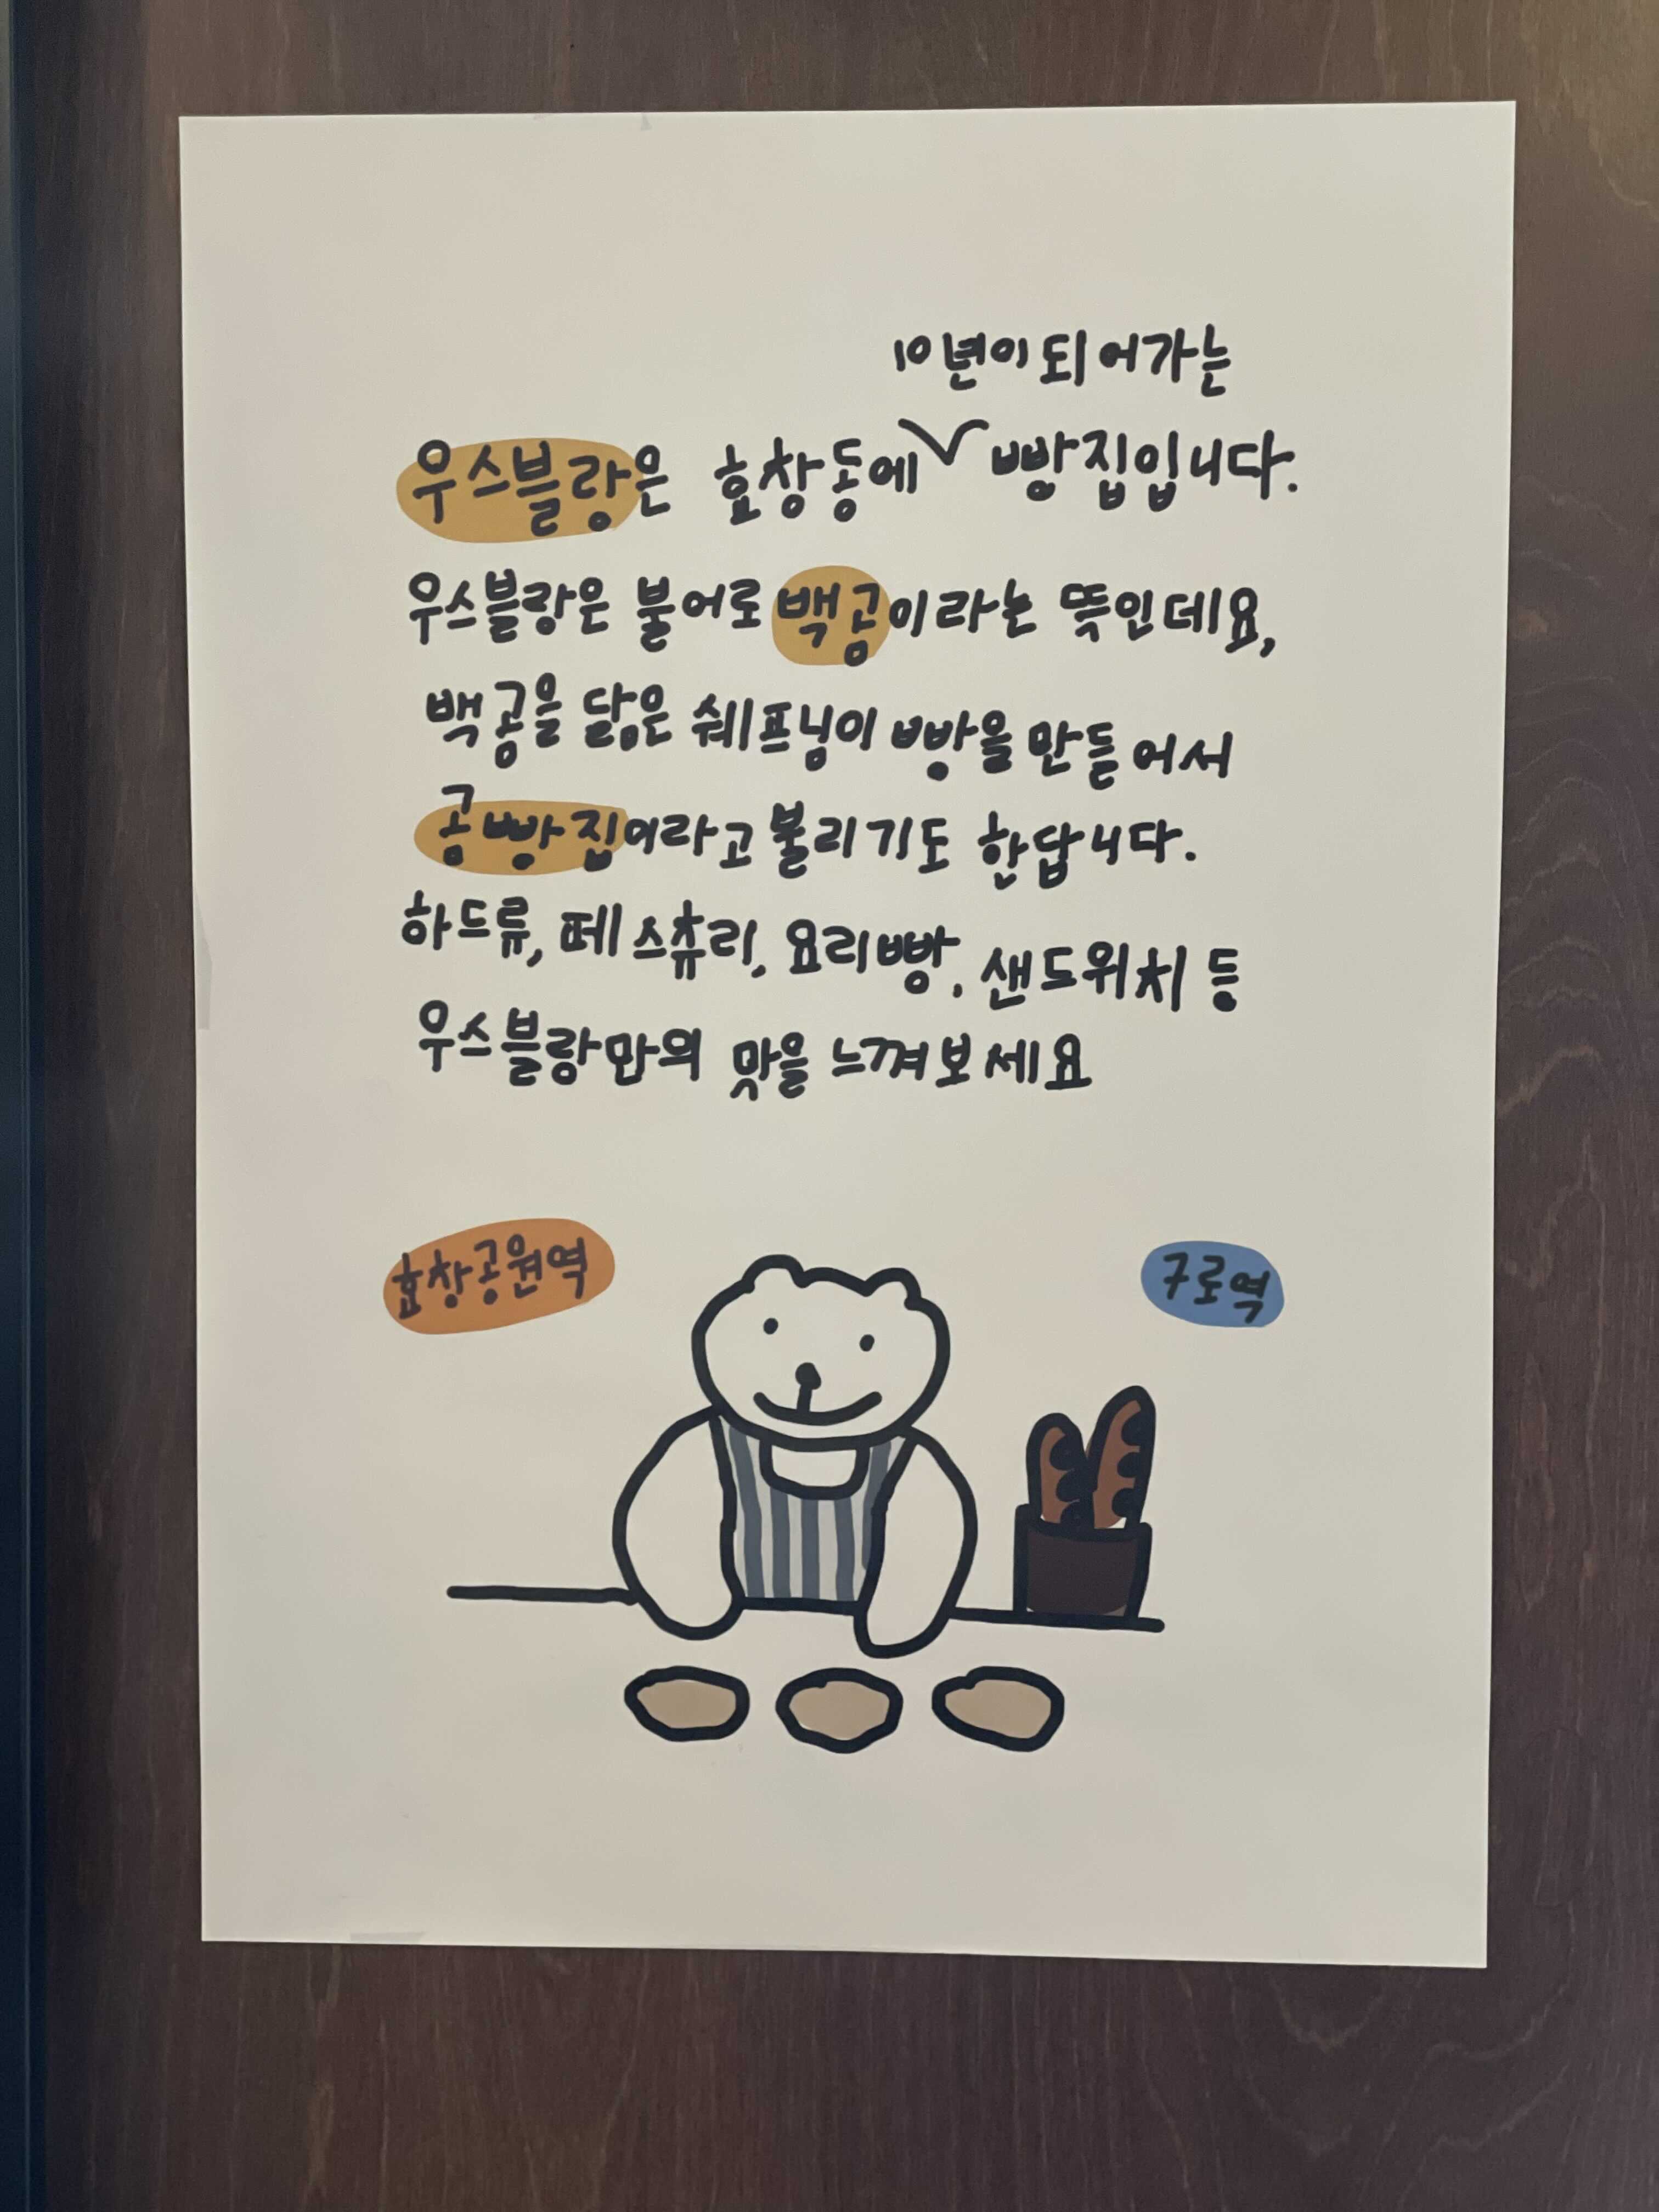 10년이 되어가는
우스블랑은 효창동에 빵집입니다.
우스블랑은 불어로 백곰이라는 뜻인데요,
백곰을 닮은 쉐프님이 빵을 만들어서
곰빵집이라고 불리기도 한답니다.
하드류, 페스츄리, 요리빵, 샌드위치 등
우스블랑만의 맛을 느껴보세요
효창공원역
구로역